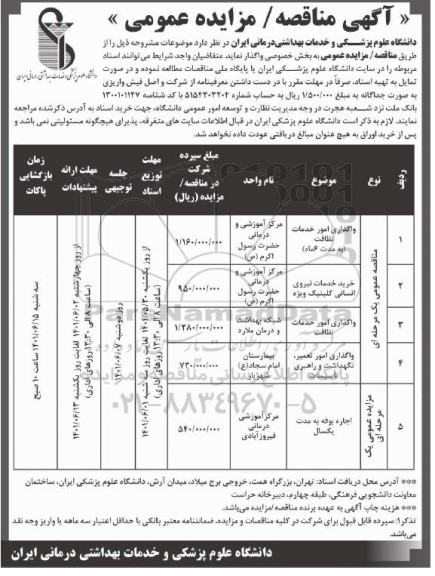 « آگهی مناقصه/ مزایده عمومی »
دانشگاه علوم پزشکی و خدمات بهداشتی درمانی ایران
دانشگاه علوم پزشکی و خدمات بهداشتی‌درمانی ایران در نظر دارد موضوعات مشروحه ذیل را از
طریق مناقصه/ مزایده عمومی به بخش خصوصی واگذار نماید. متقاضیان واجد شرایط می‌توانند اسناد
مربوطه را در سایت دانشگاه علوم پزشکی ایران یا پایگاه ملی مناقصات مطالعه نموده و در صورت
تمایل به تهیه اسناد، صرفاً در مهلت مقرر با در دست داشتن معرفینامه از شرکت و اصل فیش واریزی
به صورت جداگانه به مبلغ ۱/۵۰۰/۰۰۰ ریال به حساب شماره ۵۱۵۴۳۰۳۲۰۳ با کد شناسه ۱۳۰۰۱۰۱۱۲۷
بانک ملت نزد شعبه هجرت در وجه مدیریت نظارت و توسعه امور عمومی دانشگاه، جهت خرید اسناد به آدرس ذکرشده مراجعه
نمایند. لازم به ذکر است دانشگاه علوم پزشکی ایران در قبال اطلاعات سایت های متفرقه، پذیرای هیچگونه مسئولیتی نمی باشد و
پس از خرید اوراق به هیچ عنوان مبالغ دریافتی عودت داده نخواهد شد.
ردیف نوع موضوع نام واحد مبلغ سپرده شرکت در مناقصه/ مزایده (ریال) مهلت توزیع اسناد جلسه توجیهی مهلت ارائه پیشنهادات زمان بازگشایی پاکات
مناقصه عمومی یک مرحله ای
۱ واگذاری امور خدمات نظافت (به مدت ۶ماه) مرکز آموزشی و درمانی حضرت رسول اکرم (ص) ۱/۱۶۰/۰۰۰/۰۰۰
۲ خرید خدمات نیروی انسانی کلینیک ویژه مرکز آموزشی و درمانی حضرت رسول اکرم (ص) ۹۵۰/۰۰۰/۰۰۰
۳ واگذاری امور خدمات نظافت شبکه بهداشت و درمان ملارد ۱/۲۸۰/۰۰۰/۰۰۰
۴ واگذاری امور تعمیر، نگهداشت و راهبری تاسیسات بیمارستان امام سجاد(ع) شهریار ۷۳۰/۰۰۰/۰۰۰
مزایده عمومی یک مرحله ای
۵ اجاره بوفه به مدت یکسال مرکزآموزشی درمانی فیروزآبادی ۵۴۰/۰۰۰/۰۰۰
از روز یکشنبه ۱۴۰۱/۰۵/۳۰ لغایت روز سه شنبه ۱۴۰۱/۰۶/۰۱
(ساعت ۸ الی ۱۳:۳۰ روزهای اداری)
روز دوشنبه ۱۴۰۱/۰۶/۰۷
از روز چهارشنبه ۱۴۰۱/۰۶/۰۲ لغایت روز یکشنبه ۱۴۰۱/۰۶/۱۳
(ساعت ۸ الی ۱۳:۳۰ روزهای اداری)
سه شنبه ۱۴۰۱/۰۶/۱۵ ساعت ۱۰ صبح
ParsNamadData
۰۲۱-۸۸۳۴۹۶۷۰-۵
** آدرس محل دریافت اسناد: تهران، بزرگراه همت، خروجی برج میلاد، میدان آرش، دانشگاه علوم پزشکی ایران، ساختمان
معاونت دانشجویی فرهنگی، طبقه چهارم، دبیرخانه حراست
** هزینه چاپ آگهی به عهده برنده مناقصه/مزایده می‌باشد.
تذکر۱: سپرده قابل قبول برای شرکت در کلیه مناقصات و مزایده، ضمانتنامه معتبر بانکی با حداقل اعتبار سه ماهه یا واریز وجه نقد
می‌باشد.
دانشگاه علوم پزشکی و خدمات بهداشتی درمانی ایران